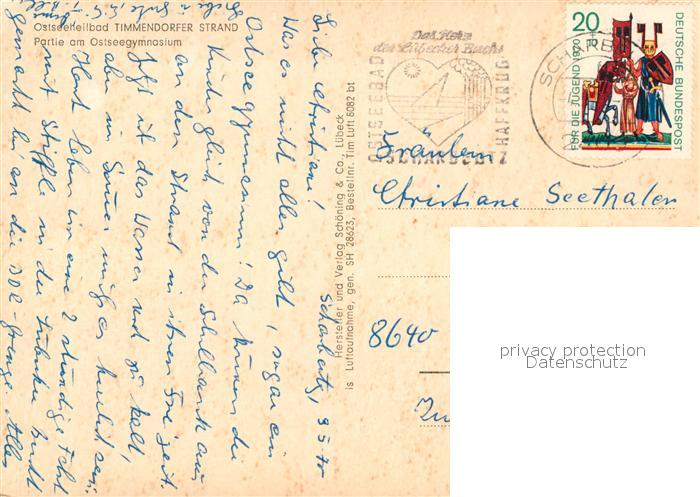 Ostseeheilbad TIMMENDORFER STRAND
Partie am Ostseegymnasium
Scharbeutz, 9.5.70
Liebe Christiane!
Was es nicht alles gibt, sogar ein
Ostseegymnasium! Da können die
Kinder gleich von der Schulbank aus
an den Strand in ihrer Freizeit.
Jetzt ist das Wasser noch zu kalt,
aber im Sommer muß es herrlich sein.
Heut haben wir eine 2 stündige Fahrt
mit Schiffle in der Lübecker Bucht
gemacht bis an die DDR-Grenze. Alles
Hersteller und Verlag Schöning & Co., Lübeck
Luftaufnahme, gen. SH 28623, Bestellnr. Tim Luft 8082 bt
Das Herz
der Lübecker Bucht
OSTSEEBAD
SCHARBEUTZ
HAFFKRUG
20
+10
FÜR DIE JUGEND 1970
DEUTSCHE BUNDESPOST
Fräulein
Christiane Seethaler
8640
privacy protection
Datenschutz